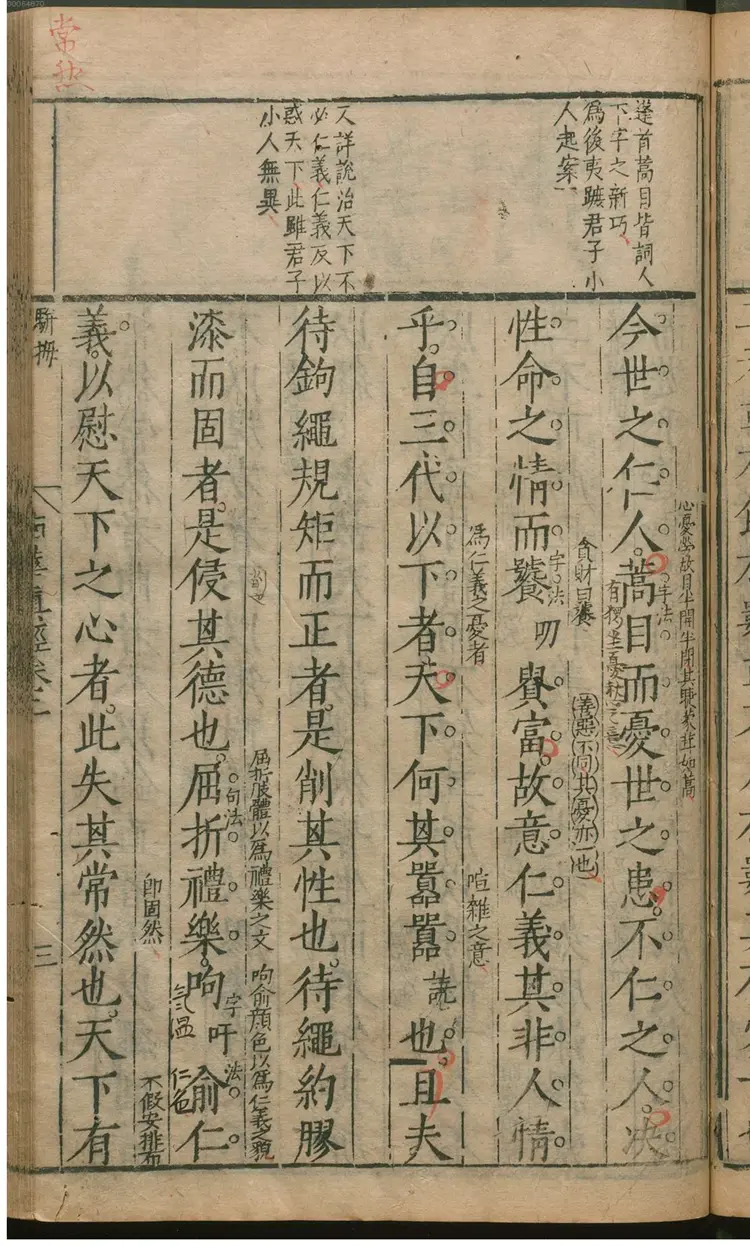 常然
蓬首蒿目皆詞人
下字之新巧
為後夷蹠君子小
人起案
又詳說治天下不
必仁義仁義反以
惑天下此雖君子
小人無異
心憂勞故目半開半閉其睫蒙茸如蒿
今世之仁人蒿目而憂世之患不仁之人決
字法
貪財曰饕
善惡不同其憂亦一也
性命之情而饕叨貴富故意仁義其非人情
字法
為仁義之憂者
喧雜之意
乎自三代以下者天下何其囂囂譊也且夫
待鉤繩規矩而正者是削其性也待繩約膠
屈折肢體以為禮樂之文 呴俞顏色以為仁義之貌
漆而固者是侵其德也屈折禮樂呴吁俞仁
句法
字法
氣溫
仁色
即固然
不假安排布
義以慰天下之心者此失其常然也天下有
駢拇
南華真經卷三
三